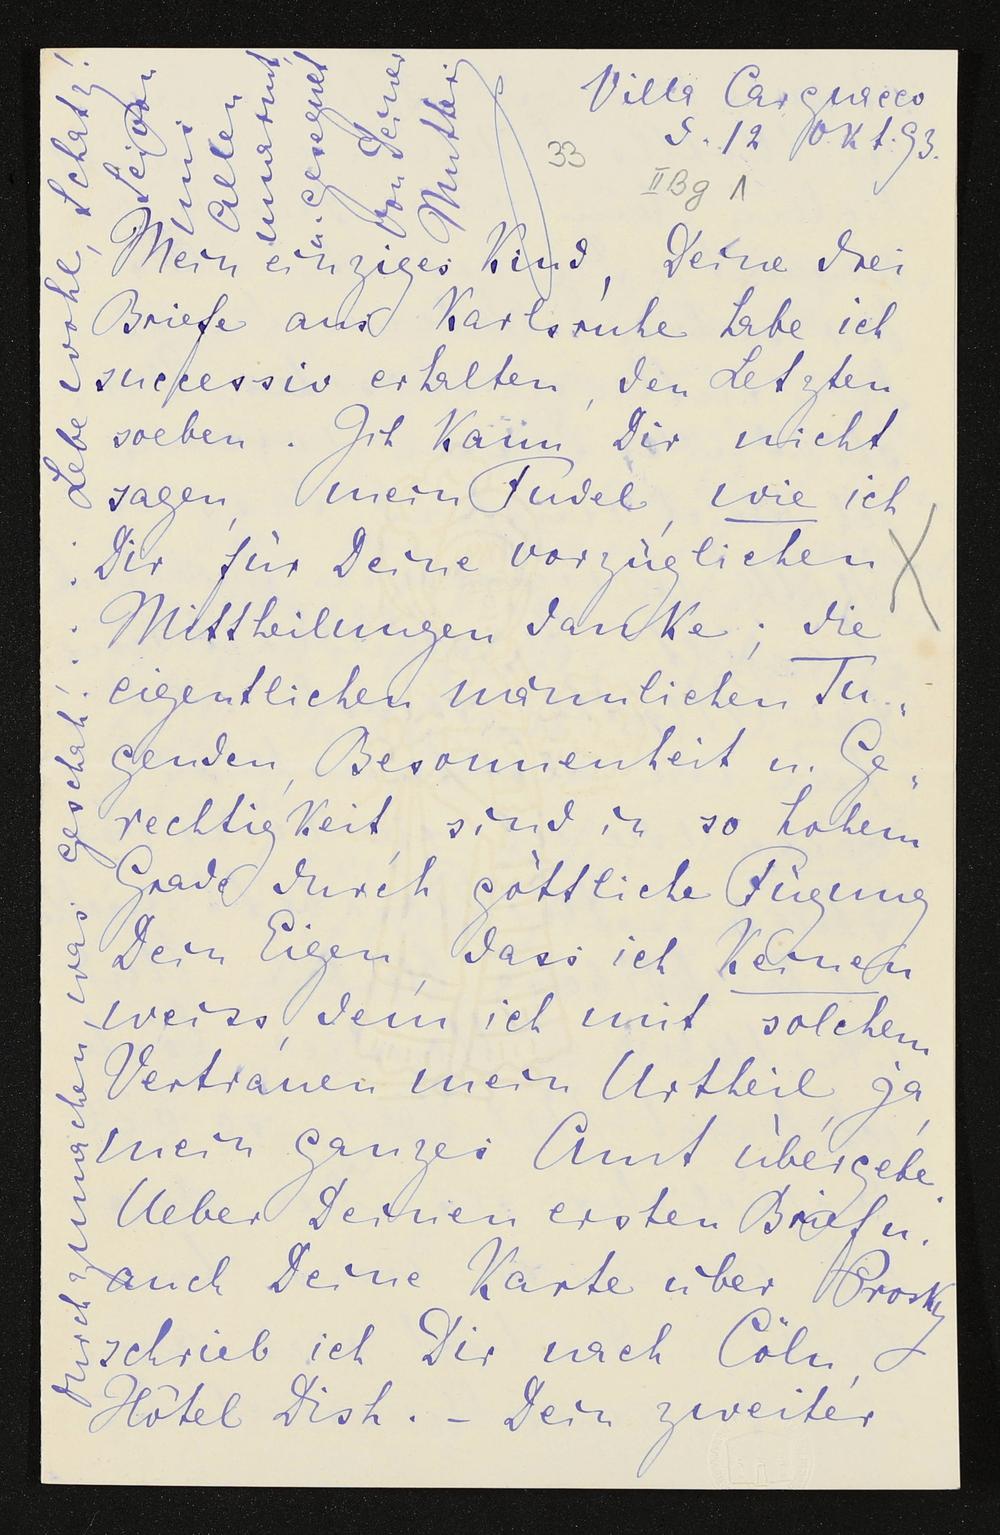 Villa Cargnacco
d. 12 Okt. 93.
33
II Bg 1
Mein einziges Kind, Deine drei
Briefe aus Karlsruhe habe ich
successiv erhalten, den Letzten
soeben. Ich kann Dir nicht
sagen, mein Fudel, wie ich
Dir für Deine vorzüglichen
Mittheilungen danke; die
eigentlichen männlichen Tu-
genden, Besonnenheit u. Ge-
rechtigkeit, sind in so hohem
Grade durch göttliche Fügung
Dein Eigen, dass ich Keinen
weiss, dem ich mit solchem
Vertrauen mein Urtheil, ja,
mein ganzes Amt übergebe.
Ueber Deinen ersten Brief u.
auch Deine Karte über Prosky
schrieb ich Dir nach Cöln,
Hôtel Dish. – Dein zweiter
durchzumachen, was geschah! . . . . Lebe wohl, Schatz!
Sei von
uns
Allen
umarmt,
u. gesegnet
von Deiner
Mutter